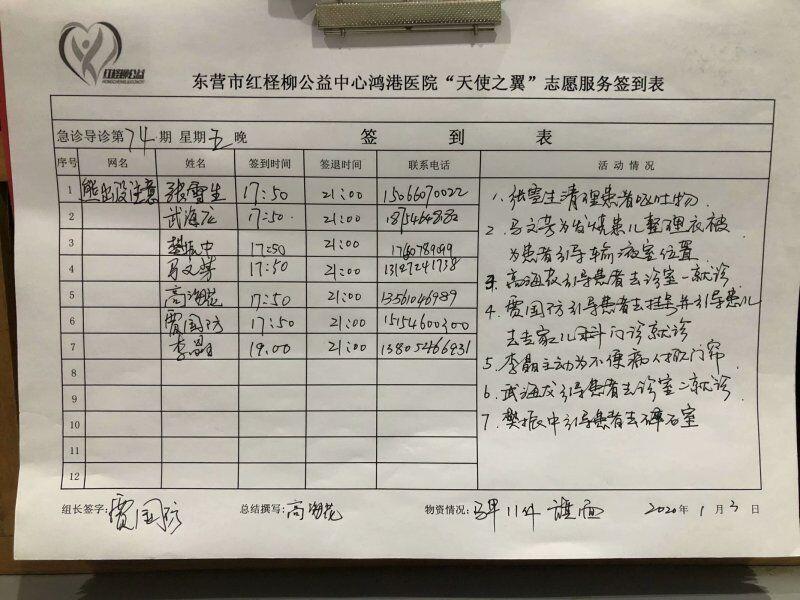 红柽柳公益
东营市红柽柳公益中心鸿港医院“天使之翼”志愿服务签到表
急诊导诊第74期 星期五晚 签到表
序号 网名 姓名 签到时间 签退时间 联系电话 活动情况
1 熊出没注意 张雪生 17:50 21:00 15066070022
2 武海龙 17:50 21:00
3 樊振中 17:50 21:00
4 马文芳 17:50 21:00
5 高海花 17:50 21:00 13561046989
6 贾国防 17:50 21:00 15154600300
7 李晶 19:00 21:00 13805466931
8
9
10
11
12
1、张雪生清理患者呕吐物
2、马文芳为发烧患儿整理衣被
为患者引导输液室位置
3、高海花引导患者去诊室一就诊
4、贾国防引导患者去挂号并引导患儿
去专家儿科门诊就诊
5、李晶主动为不便病人掀门帘
6、武海龙引导患者去诊室二就诊
7、樊振中引导患者去碎石室
组长签字:贾国防 总结撰写:高海花 物资情况: 马甲11件 旗一面 2020年1月3日